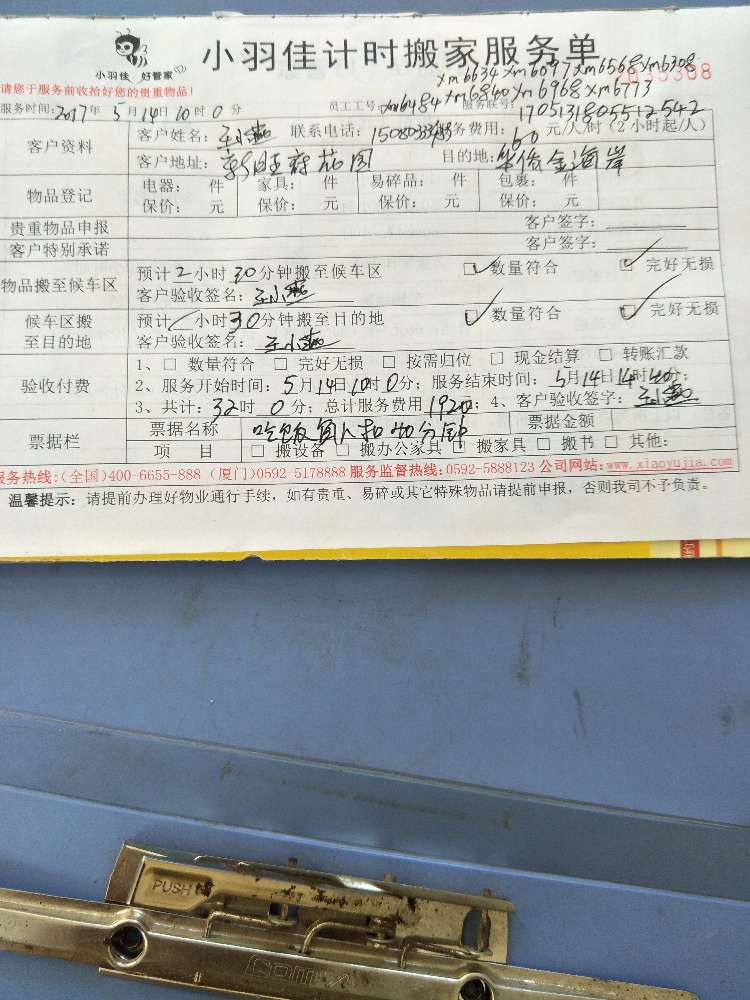 小羽佳 好管家
小羽佳计时搬家服务单
xm6634 xm6097 xm6568 xm6308
请您于服务前收拾好您的贵重物品!
2035308
服务时间:2017年5月14日10时0分 员工工号:xm6484 xm6840 xm6968 xm6773 服务联号:
1705131805512542
客户资料
客户姓名:王小燕 联系电话: 服务费用:60元/人/时(2小时起/人)
客户地址: 花园 目的地:华侨金海岸
物品登记
电器: 件 家具: 件 易碎品: 件 包裹: 件
保价: 元 保价: 元 保价: 元 保价: 元
贵重物品申报 客户签字:
客户特别承诺 客户签字:
物品搬至候车区
预计2小时30分钟搬至候车区 □✓数量符合 □✓完好无损
客户验收签名:王小燕
候车区搬至目的地
预计/小时30分钟搬至目的地 □✓数量符合 □✓完好无损
客户验收签名:王小燕
验收付费
1、□ 数量符合 □ 完好无损 □ 按需归位 □ 现金结算 □ 转账汇款
2、服务开始时间:5月14日10时0分;服务结束时间:5月14日14时40分;
3、共计:32时0分;总计服务费用1920;4、客户验收签字:王小燕
票据栏
票据名称 票据金额
吃饭每人扣40分钟
项 目 □ 搬设备 □ 搬办公家具 □ 搬家具 □ 搬书 □ 其他:
服务热线:(全国)400-6655-888 (厦门)0592 5178888 服务监督热线:0592-5888123 公司网站:www.xiaoyujia.com
温馨提示:请提前办理好物业通行手续,如有贵重、易碎或其它特殊物品请提前申报,否则我司不予负责。
PUSH